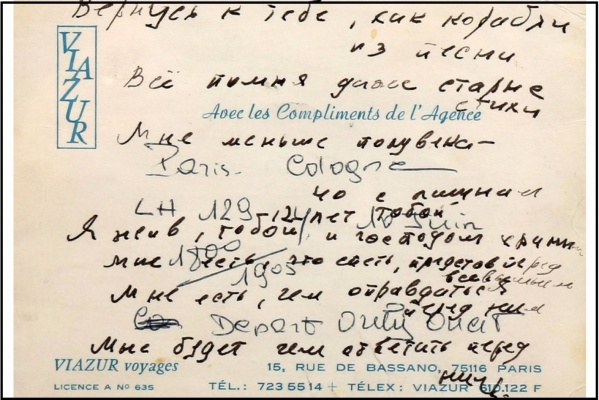 Вернусь к тебе, как корабли
из песни
VIAZUR
Всё помня даже старые
стихи
Avec les Compliments de l'Agence
Мне меньше полувека —
Paris - Cologne
40 с лишним
LH 129 12 лет тобой 10 Juin
Я жив, тобой и господом храним
Мне есть, что спеть, представ перед
всевышним
1905
Мне есть, чем оправдаться
перед ним
Depart Orly Ouest
Мне будет чем ответить перед
ним.
VIAZUR voyages
LICENCE A N° 635
15, RUE DE BASSANO, 75116 PARIS
TÉL.: 723 55 14 + TÉLEX: VIAZUR 610.122 F